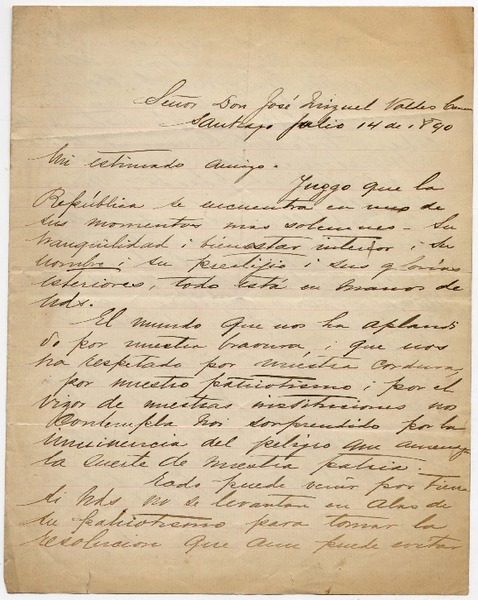 Señor Don José Miguel Valdes
Santiago Julio 14 de 1890
Mi estimado amigo.
Juzgo que la
República se encuentra en uno de
sus momentos mas solemnes - Su
tranquilidad i bienestar interior i su
nombre i su prestijio i sus glorias
esteriores, todo está en manos de
Uds.
El mundo que nos ha aplaudi
do por nuestra bravura i que nos
ha respetado por nuestra cordura,
por nuestro patriotismo i por el
vigor de nuestras instituciones nos
Contempla hoi sorprendido por la
inminencia del peligro que amenaza
la suerte de nuestra patria.
Todo puede venir por tierra
si Uds no se levantan en alas de
su patriotismo para tomar la
resolucion que aun puede evitar